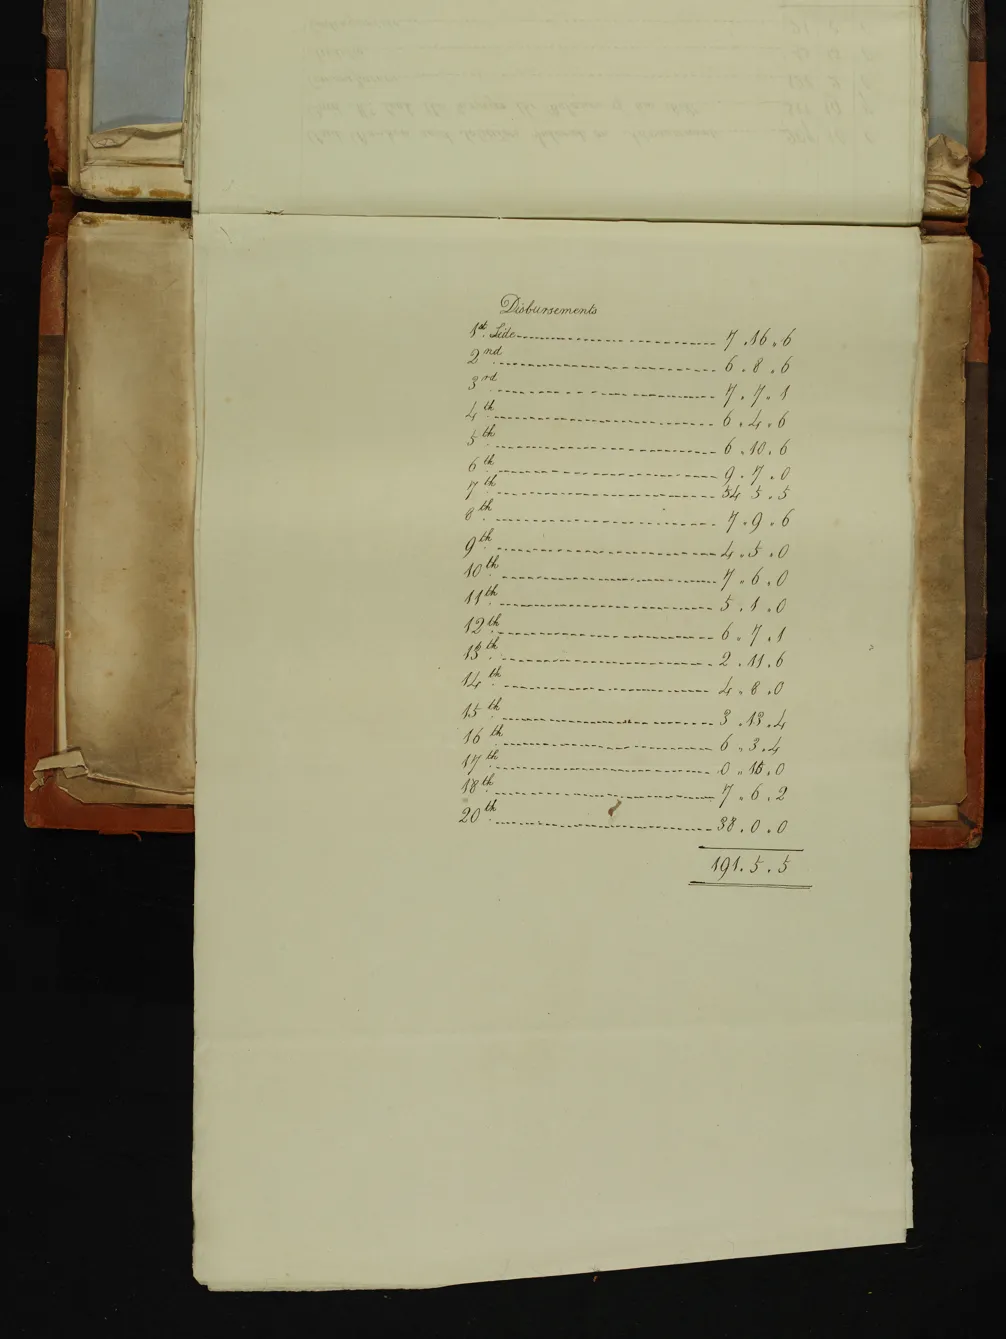 Disbursements
1st Side 7.16.6
2nd 6.8.6
3rd 7.7.1
4th 6.4.6
5th 6.10.6
6th 9.7.0
7th 54 5.5
8th 7.9.6
9th 4.5.0
10th 7.6.0
11th 5.1.0
12th 6.7.1
13th 2.11.6
14th 4.8.0
15th 3.13.4
16th 6.3.4
17th 0.15.0
18th 7.6.2
20th 38.0.0
191.5.5